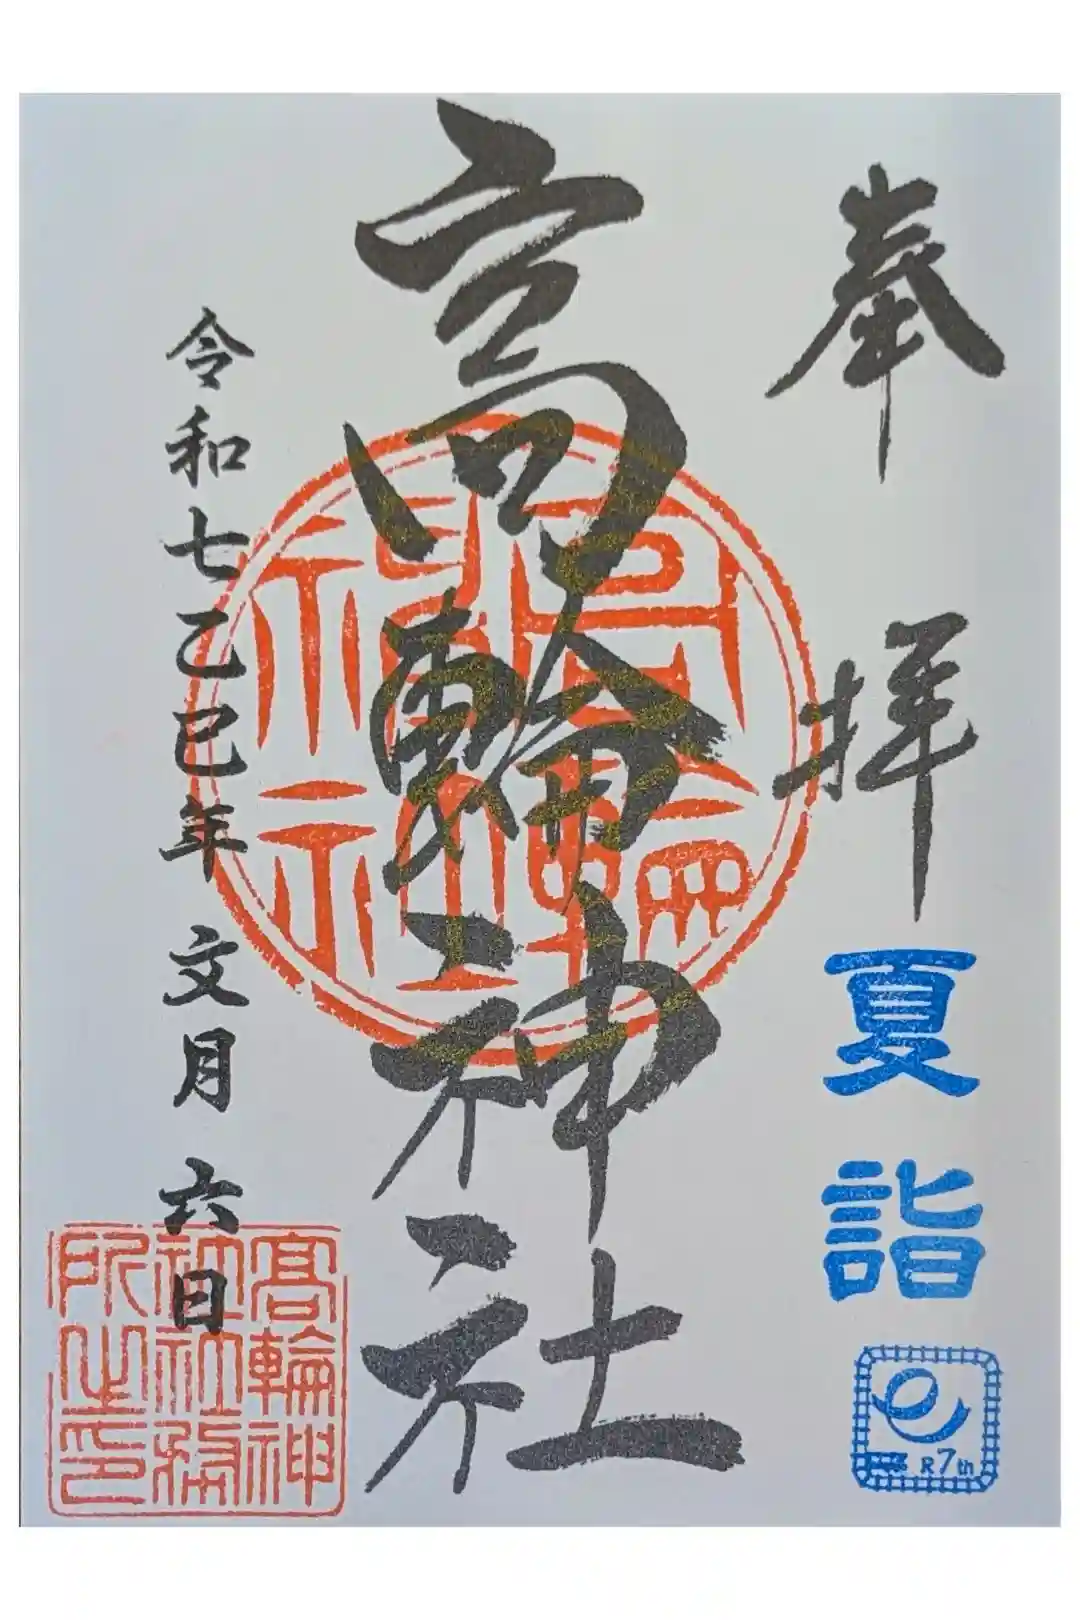 奉拝
夏詣
R7th
高輪神社
令和七乙巳年 文月 六日
高輪神
社社務
所之印